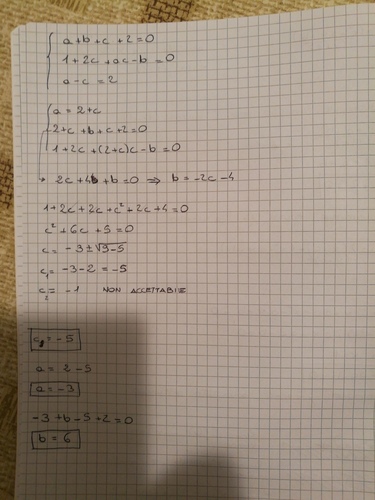 a+b+c+2=0
1+2c+ac-b=0
a-c=2
a=2+c
2+c+b+c+2=0
1+2c+(2+c)c-b=0
→ 2c+4+b=0 ⇒ b=-2c-4
1+2c+2c+c²+2c+4=0
c²+6c+5=0
c=-3±√9-5
c₁=-3-2=-5
c₂=-1 NON ACCETTABILE
c₁=-5
a=2-5
a=-3
-3+b-5+2=0
b=6